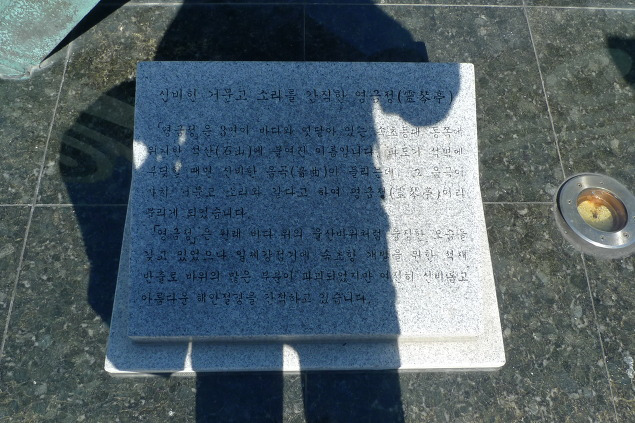 신비한 거문고 소리를 간직한 영금정(靈琴亭)
「영금정」은 8경이 바다와 맞닿아 있는 속초등대 동쪽에
위치한 석산(石山)에 붙여진 이름입니다. 파도가 석벽에
부딪힐 때면 신비한 음곡(音曲)이 들리는데, 그 음곡이
마치 거문고 소리와 같다고 하여 영금정(靈琴亭)이라
불리게 되었습니다.
「영금정」은 원래 바다 위의 울산바위처럼 웅장한 모습을
갖고 있었으나 일제강점기에 속초항 개발을 위한 석재
반출로 바위의 많은 부분이 파괴되었지만 여전히 신비롭고
아름다운 해안절경을 간직하고 있습니다.